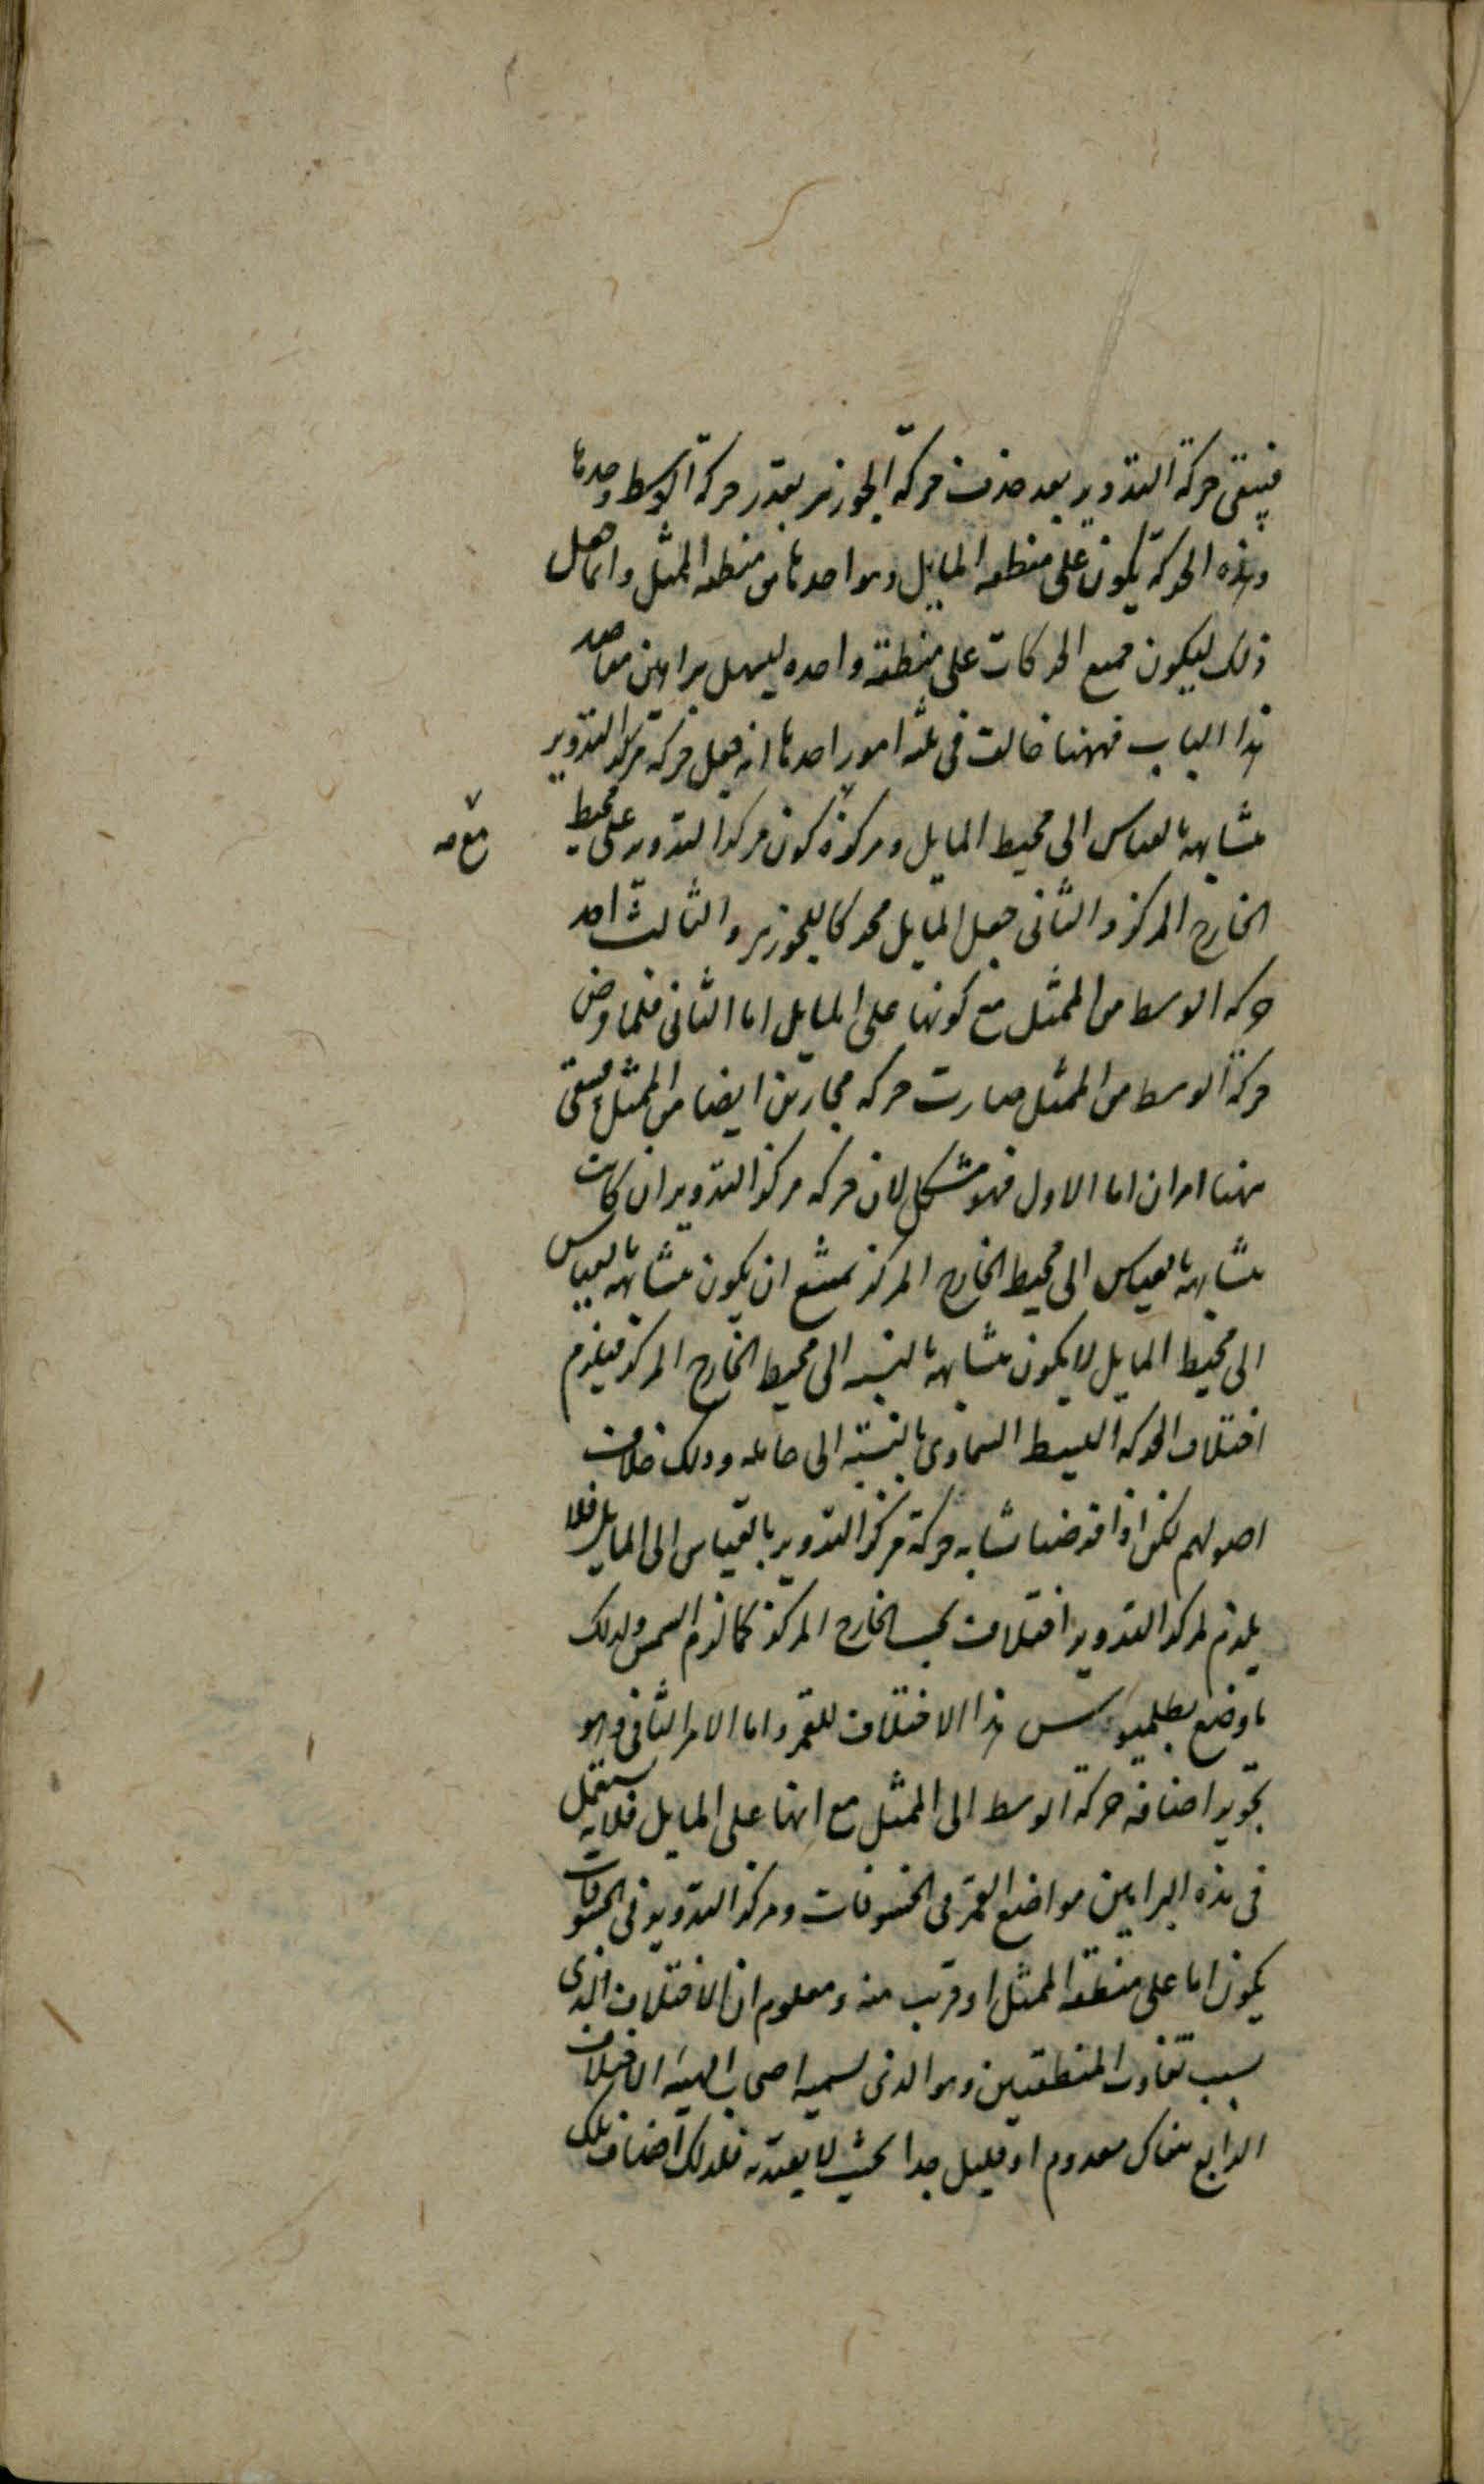 فيبقى حركة التدوير بعد حذف حركة الجوزهر بقدر حركة الوسط وحدها
وهذه الحركة يكون على منطقه المايل وهو احدها من منطقه الممثل وانما فعل
ذلك ليكون جميع الحركات على منطقة واحده ليسهل براهين مقاصد
هذا الباب فههنا خالف فى ثلثه امور احدها انه جعل حركة مركز التدوير
متشابهه بالقياس الى محيط المايل ومركزه كون مركز التدوير على محيط
مع
الخارج المركز والثانى جعل المايل محركا للجوزهر والثالث اخذ
حركه الوسط من الممثل مع كونها على المايل اما الثانى فلما فرض
حركة الوسط من الممثل صارت حركه ايضا من الممثل فيبقى
ههنا امران اما الاول فهو مشكل لان حركه مركز التدوير ان كانت
متشابهه بالقياس الى محيط الخارج المركز يمتنع ان يكون متشابهه بالقياس
الى محيط المايل لا يكون متشابهه بالنسبه الى محيط الخارج المركز فيلزم
اختلاف الحركه البسيط السماوى بالنسبة الى حامله وذلك خلاف
اصولهم لكن اذا فرضنا تشابه حركة مركز التدوير بالقياس الى المايل فلا
يلزم لمركز التدوير اختلاف بحسب الخارج المركز كما لزم الشمس ولذلك
ما وضع بطلميوس هذا الاختلاف للقمر واما الامر الثانى وهو
تجويز اضافه حركة الوسط الى الممثل مع انها على المايل فلانه يستعمل
فى هذه البراهين مواضع القمر فى الخسوفات ومركز التدوير فى الخسوفات
يكون اما على منطقه الممثل او قريب منه ومعلوم ان الاختلاف الذى
بسبب تفاوت المنطقتين وهو الذى يسميه اصحاب الهيئه الاختلاف
الرابع هناك معدوم او قليل جدا بحيث لا يعتد به فلذلك اضاف تلك